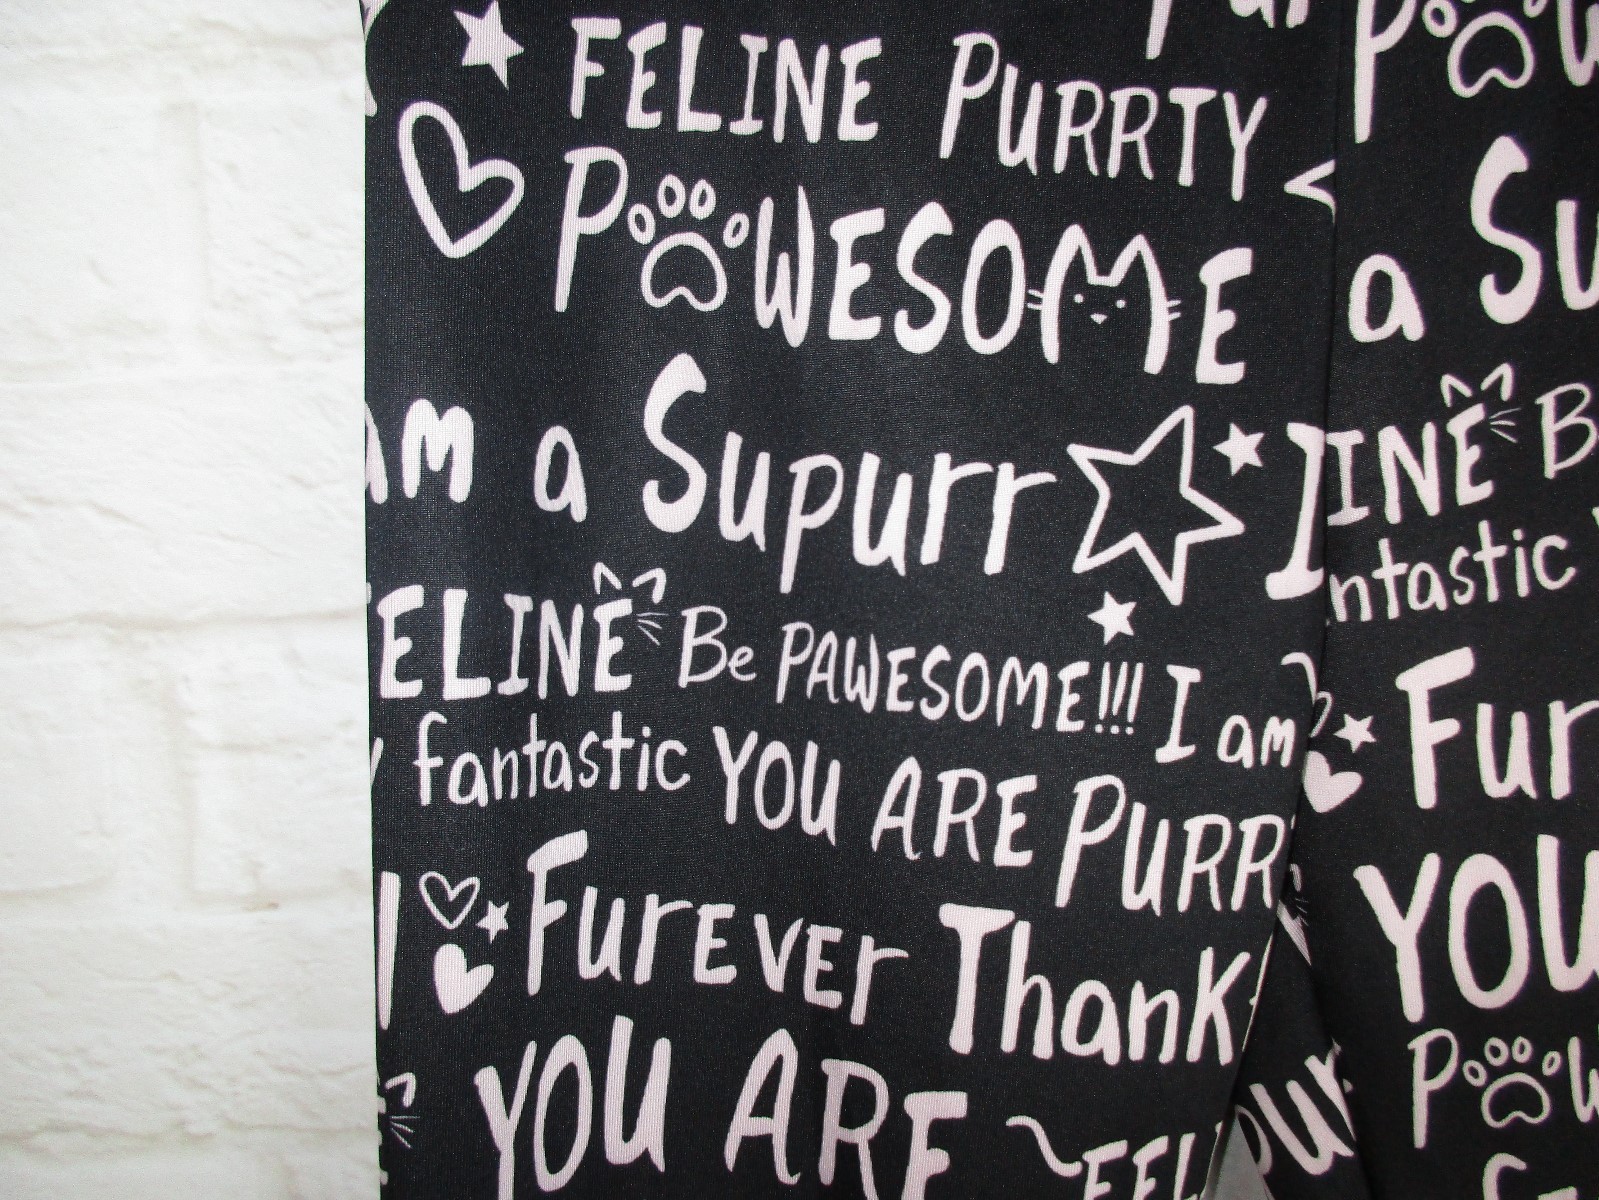 FELINE PURRTY
PAWESOME
am a Supurr I
a Su
FELINE Be PAWESOME!!! I am
INE B
fantastic YOU ARE PURR
ntastic
Furever Thank
Fur
YOU ARE
YOU
FEL
PAW